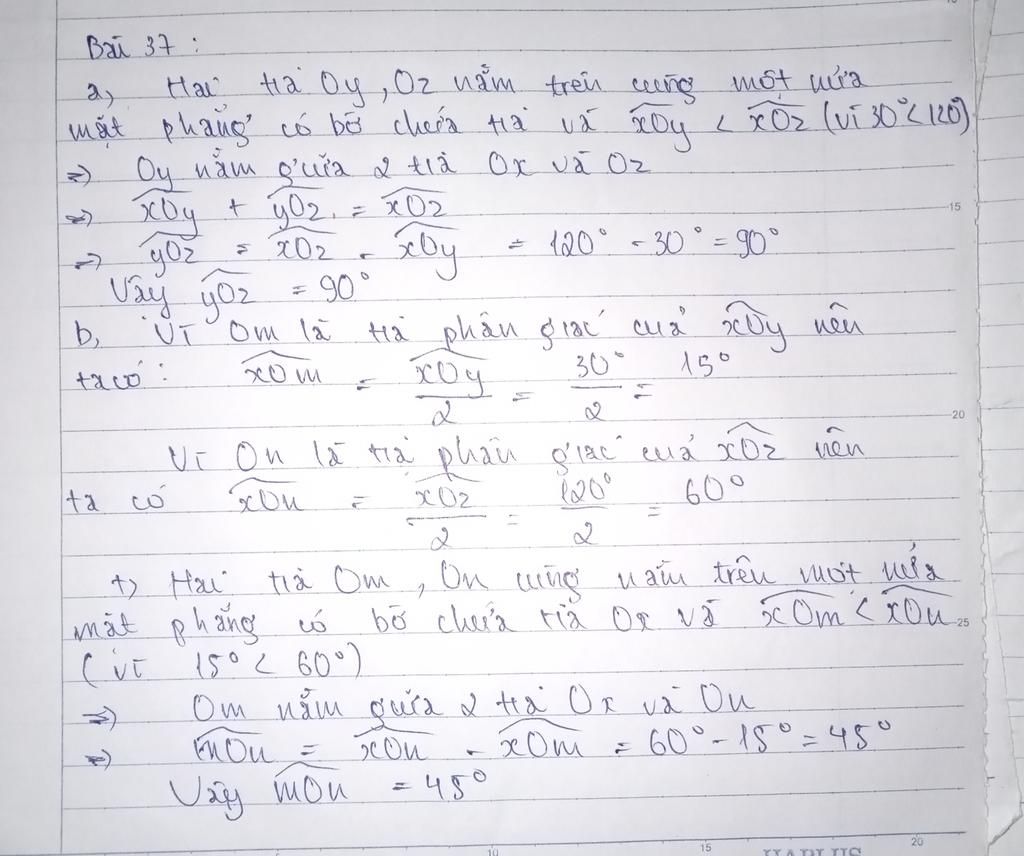 Bài 37 :
a, Hai tia Oy, Oz nằm trên cùng một nửa
mặt phẳng có bờ chứa tia và xOy < xOz (vì 30° < 120°)
=> Oy nằm giữa 2 tia Ox và Oz
=> xOy + yOz = xOz
=> yOz = xOz - xOy = 120° - 30° = 90°
Vậy yOz = 90°
b, Vì Om là tia phân giác của xOy nên
ta có : xOm = xOy/2 = 30°/2 = 15°
Vì On là tia phân giác của xOz nên
ta có xOn = xOz/2 = 120°/2 = 60°
+) Hai tia Om, On cùng nằm trên một nửa
mặt phẳng có bờ chứa tia Ox và xOm < xOn
(vì 15° < 60°)
=> Om nằm giữa 2 tia Ox và On
=> mOn = xOn - xOm = 60° - 15° = 45°
Vậy mOn = 45°
15
20
25
10
15
20